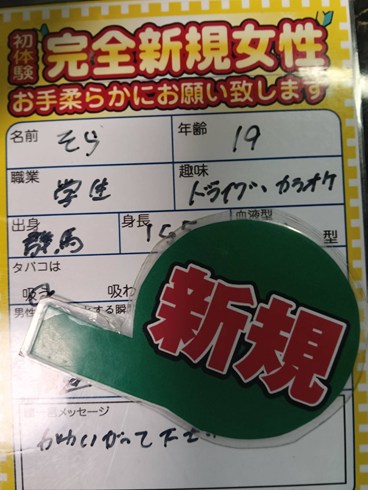 初体験 完全新規女性
お手柔らかにお願い致します
名前 そら 年齢 19
職業 学生 趣味 ドライブ、カラオケ
出身 群馬 身長 155 血液型 型
タバコは
吸わ
男性 する瞬
新規
メッセージ
かわいがって下さ